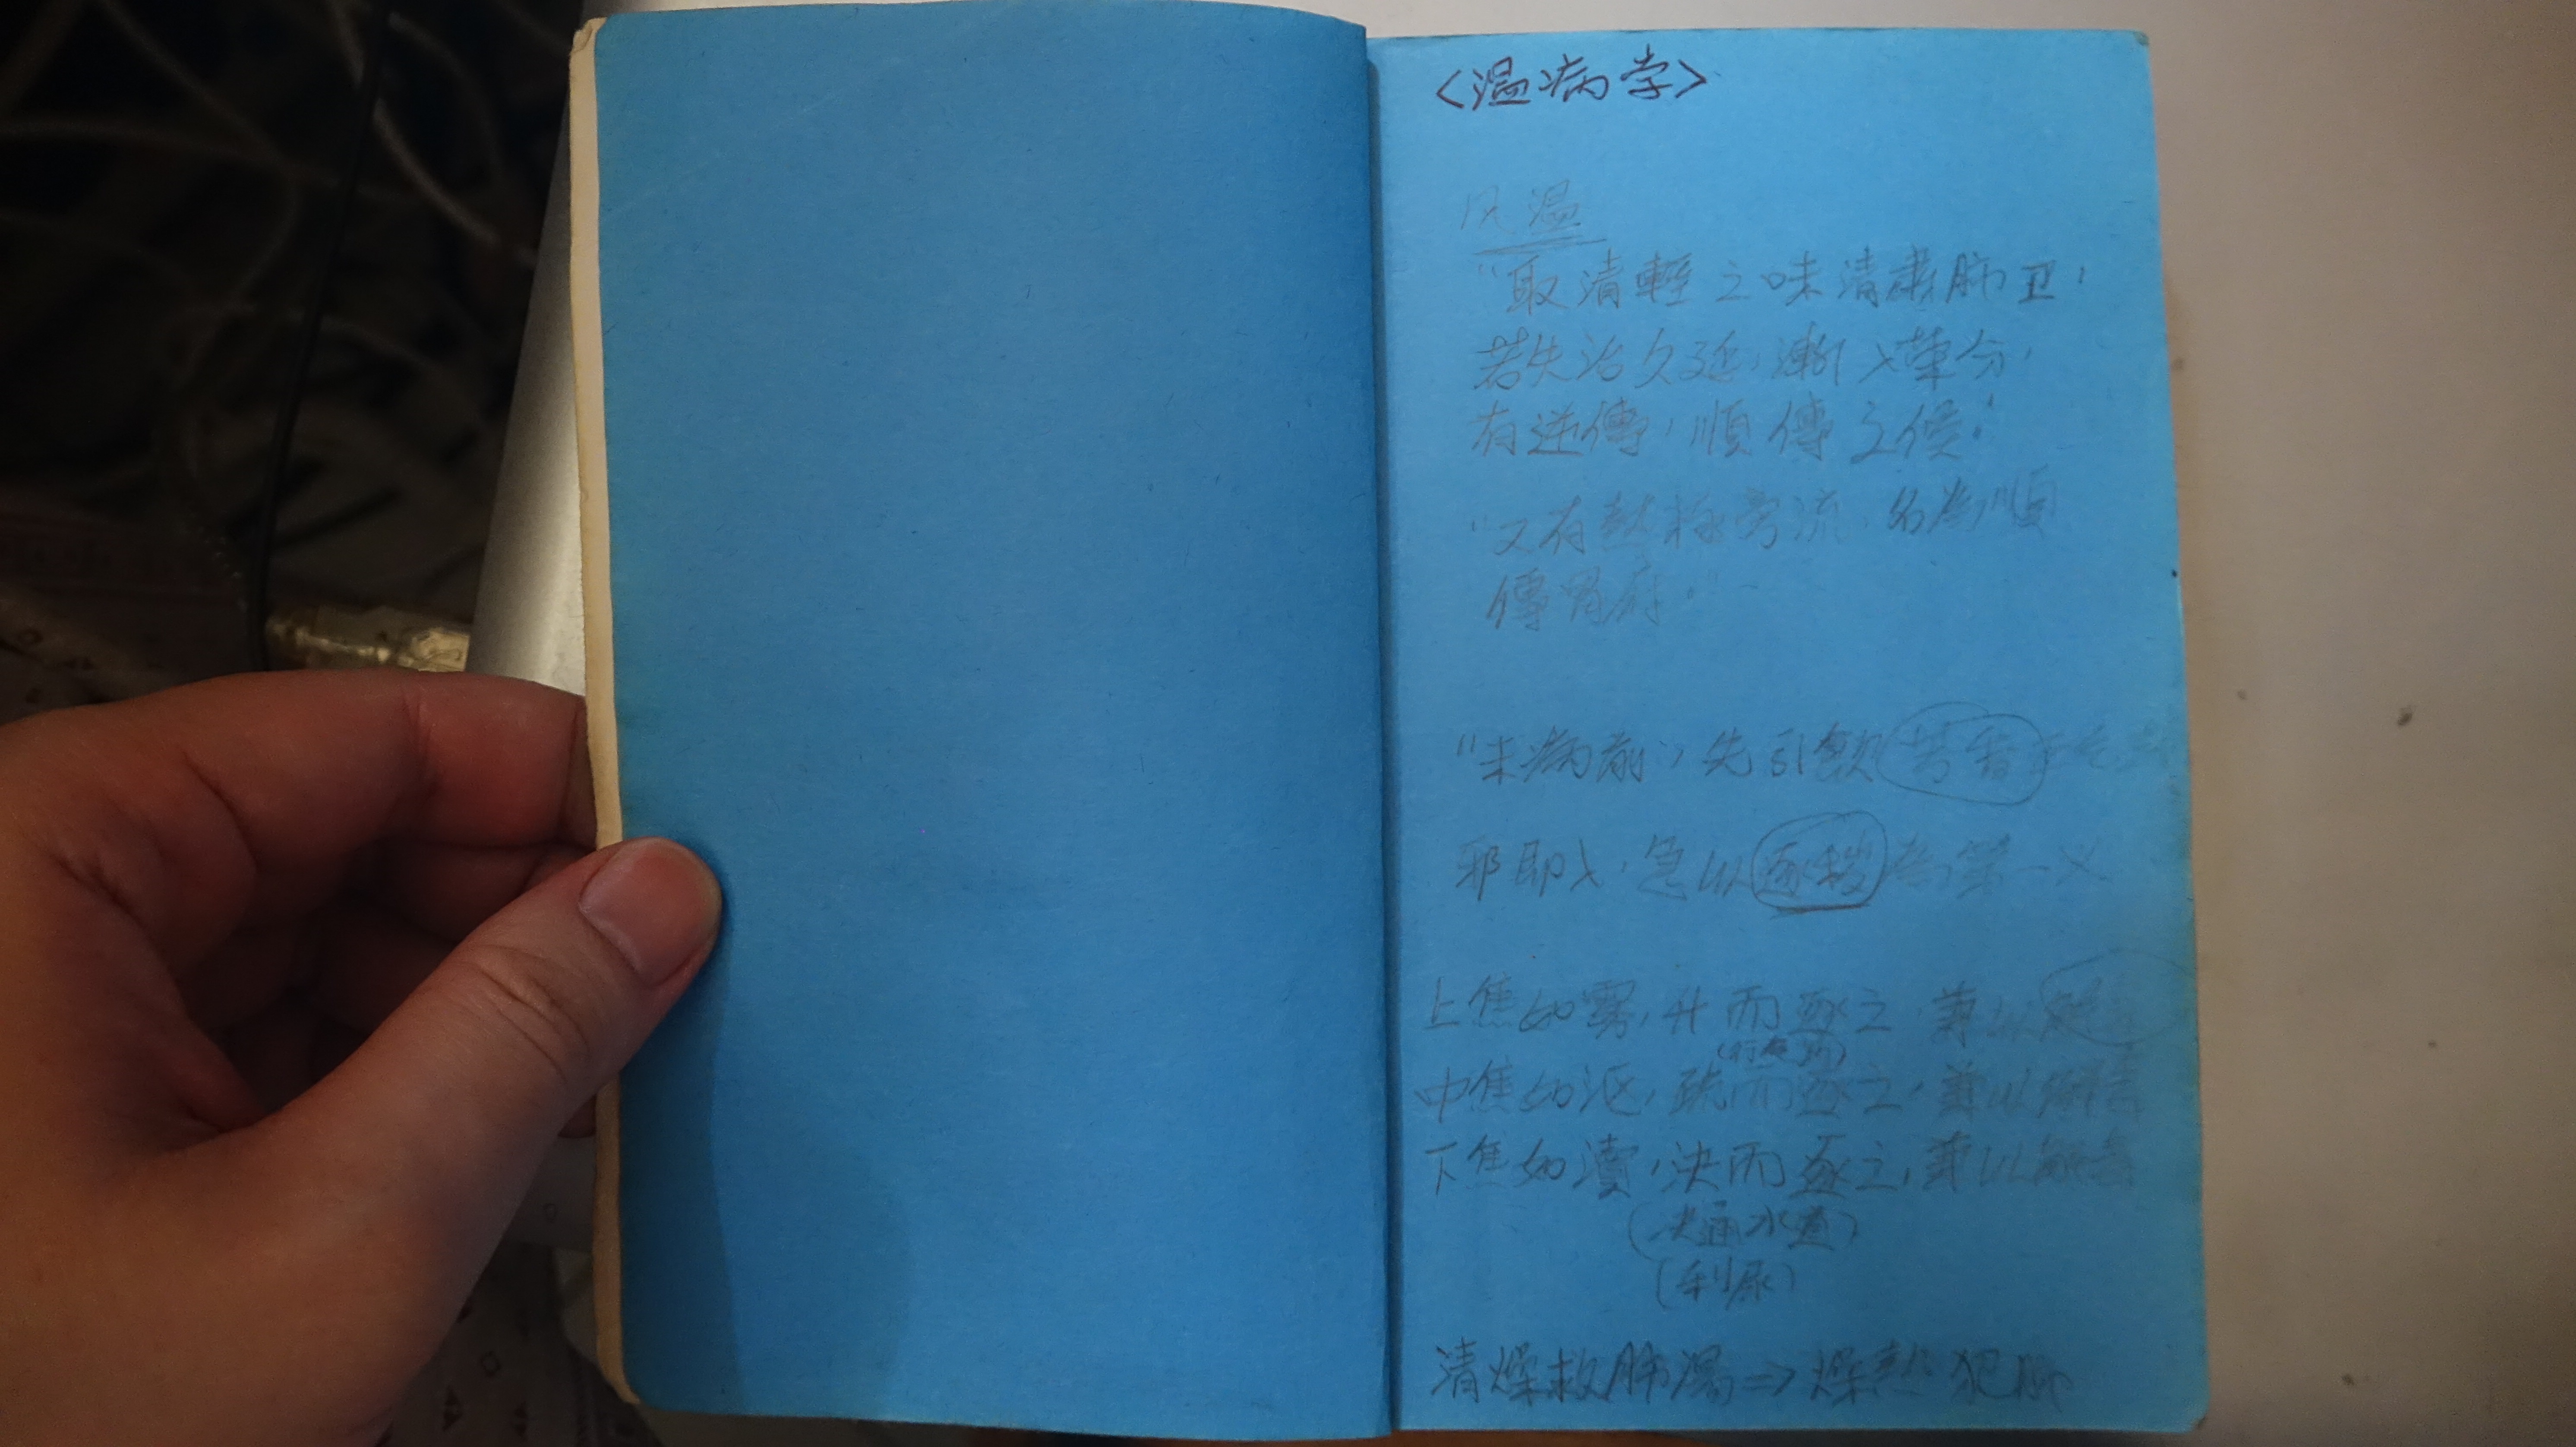 <温病学>
风温
"取清輕之味清肅肺卫,
若失治久延,漸入营分,
有逆傳,順傳之候:
"又有熱極旁流,名為順
傳胃府."
"未病前",先引飲芳香
邪即入,急以逐穢為第一义
上焦如雾,升而逐之,兼以解毒
(行气药)
中焦如沤,疏而逐之,兼以解毒
下焦如瀆,决而逐之,兼以解毒
(决通水道)
(利尿)
清燥救肺湯=>燥热犯肺